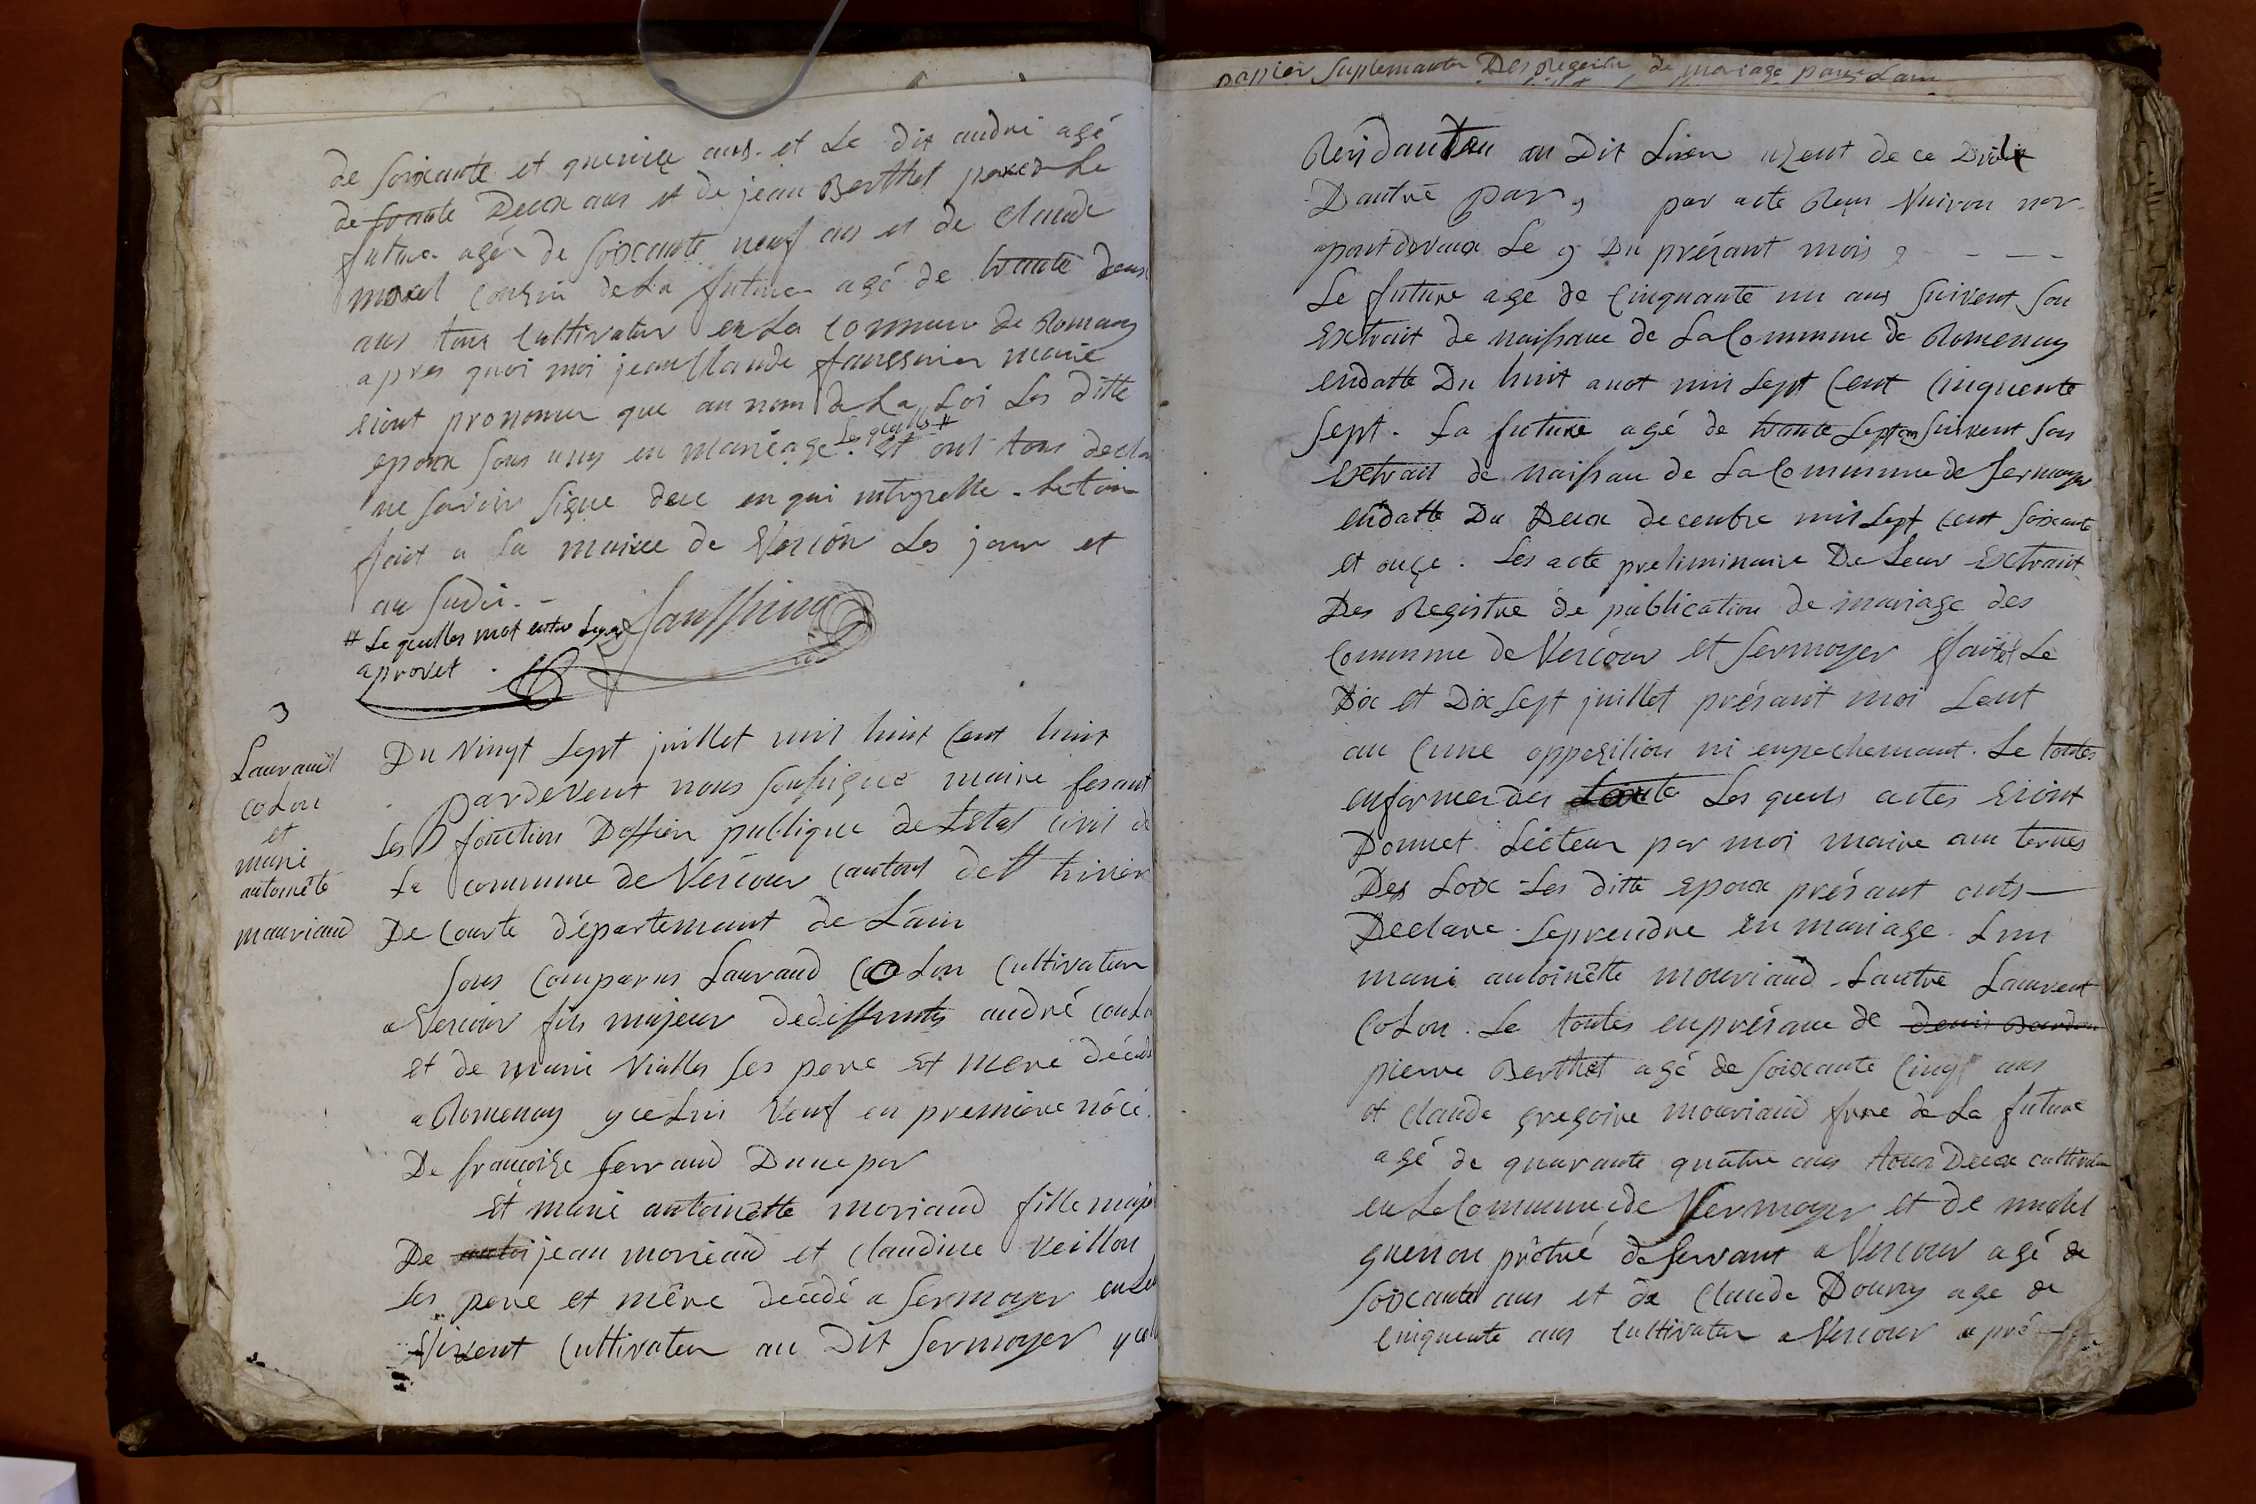 de soixante et quinze ans. et Le dit andré agé
de trante Deux ans et de jean Berthet
future agé de soixante neuf ans et de Claude
morel Cousin de La future agé de trante deux
ans tous Cultivateur en La Commune de Romenay
apres quoi moi jean Claude faussurier maire
eiont prononcer que au nom de La Loi Les ditte
Les quelles #
epoux sons unis en mariage. et ont tous decla
ne savoir signe dece en qui
fait a La mairee de Vescour Les jour et
an sudit. -
# Le quelles mot entre Ligne
aprovet .
3
Lauraud
coLon
et
marie
antoinete
mauriaud
Du vingt Sept juillet mil huit Cent huit
Pardevent nous soussigné maire fesant
Les fonction Doffier publique de Letat civil de
La commune de Vescour canton de St trivier
De Courte département de Lain
sons Comparus Lauraud CoLon Cultivateur
a Vescour fils majeur dediffunts andré couLo
et de marie Vialler ses pere et mere décéd
a Romenay yceLui Veuf en premiere nôce
De françoize ferraud Dune par
et marie antoinette moriaud fille maje
De jean morieaud et claudine Veillon
Ses pere et mêre décédé a sermoyer
Vivent Cultivateur au Dit sermoyer
papier suplemanter Des Registre de mariage pour Lan
Residanten au Dit Lieu uzent de ce Droit
Dautre par, par acte Reçu Vuiron not
apontdevaux Le 9 Du prézant mois ,- - - -
Le future age de Cinquante un ans suivent son
Extrait de naissance de La Commune de Romenay
endatte Du huit aout mil sept Cent Cinquente
sept. La future agé de trante Sept ans suivent son
Extrait de naissance de La Commune de sermoyer
endatte Du Deux decenbre mil sept cent soixante
et onze. Les acte preliminaire De Leur Extrait
Des Registre de publication de mariage des
Commune de Vescour et sermoyer faitet Le
Dix et Dix Sept juillet présant moi Sent
au Cune oppozition ni enpechemant. Le toutes
enforme des Les quels actes eiont
Donnet Lecteur par moi maire aux termes
Des Loix Les ditte epoux présant onts —
Declare Seprendre en mariage. Lun
marie antoinette mouriaud. Lautre Laurent
CoLon. Le toutes enprésance de denis
pierre Berthet agé de soixante Cinq ans
et claude gregoire mouriaud frere de La future
agé de quarante quatre ans tous Deux cultivateu
en La Commune de sermoyer et de michel
guenon prêtré deservant a Vescour agé de
soixante ans et de Claude Doury age de
Cinquente ans Cultivateur a Vescour apré